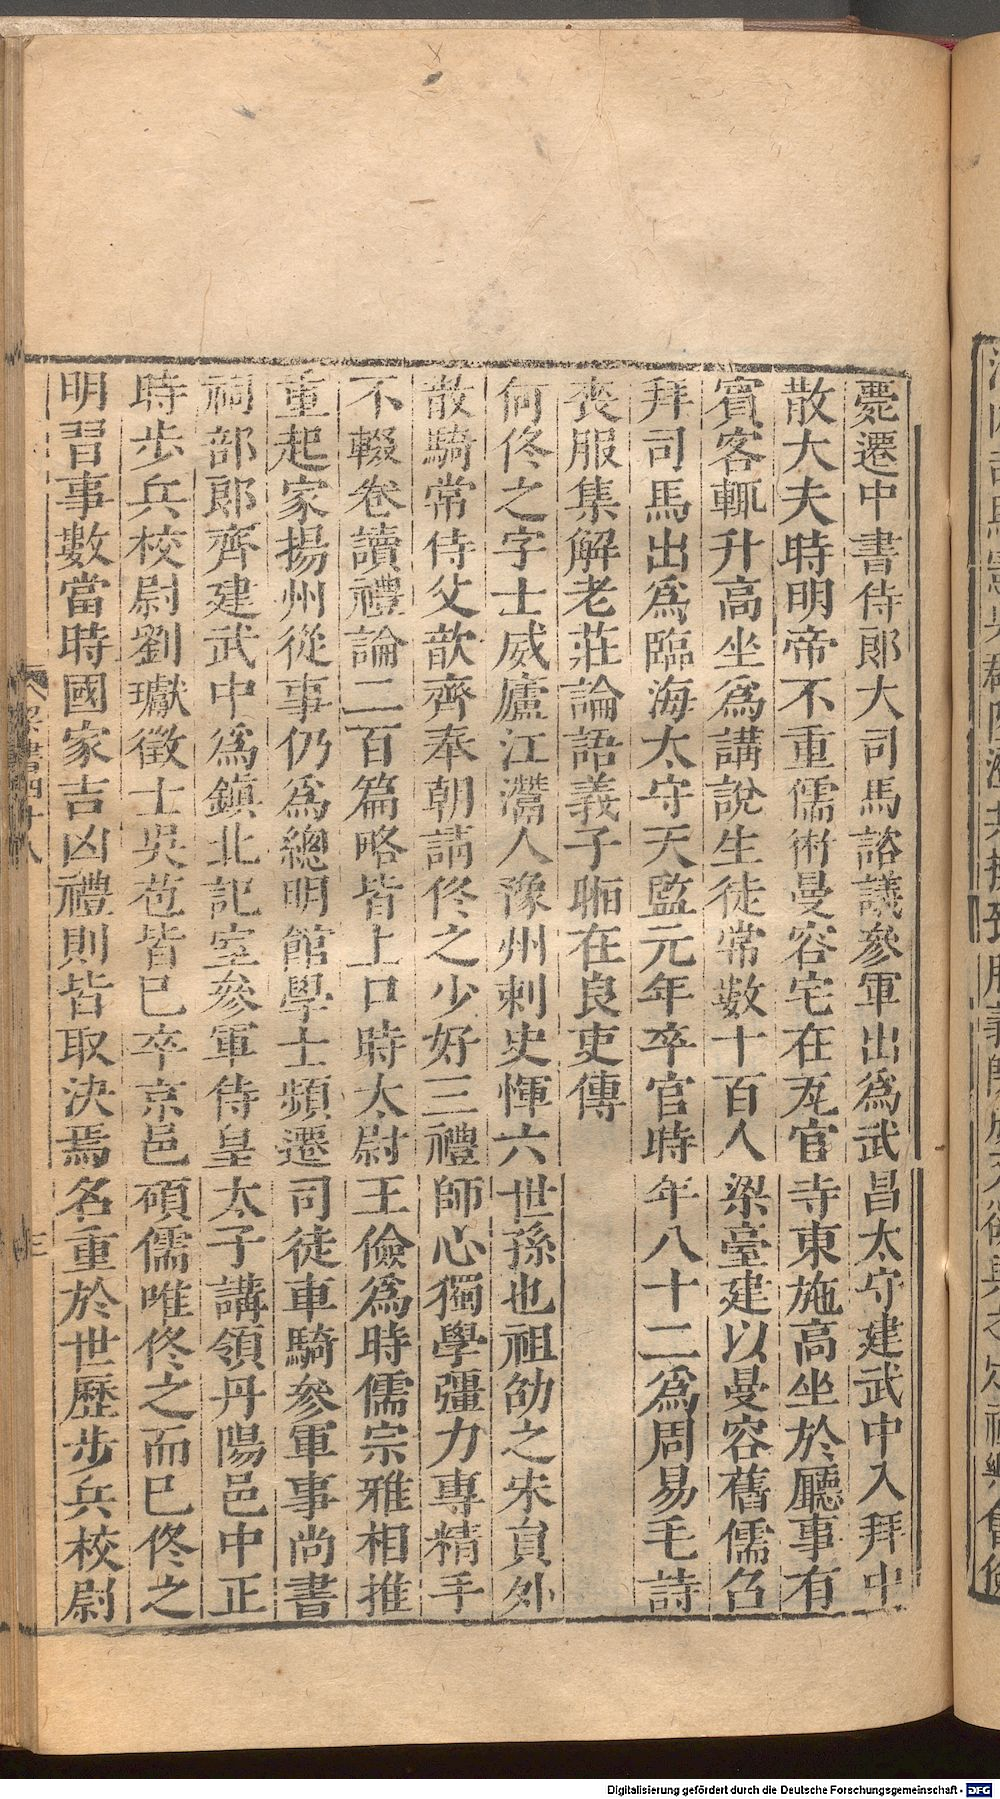 薨遷中書侍郎大司馬諮議參軍出爲武昌太守建武中入拜中
散大夫時明帝不重儒術曼容宅在瓦官寺東施高坐於廳事有
賓客輒升高坐爲講說生徒常數十百人梁臺建以曼容舊儒召
拜司馬出爲臨海太守天監元年卒官時年八十二爲周易毛詩
喪服集解老莊論語義子暅在良吏傳
何佟之字士威廬江灊人豫州刺史惲六世孫也祖劭之宋員外
散騎常侍父歆齊奉朝請佟之少好三禮師心獨學彊力專精手
不輟卷讀禮論二百篇略皆上口時太尉王儉爲時儒宗雅相推
重起家揚州從事仍爲總明館學士頻遷司徒車騎參軍事尚書
祠部郎齊建武中爲鎭北記室參軍侍皇太子講領丹陽邑中正
時步兵校尉劉瓛徵士吳苞皆已卒京邑碩儒唯佟之而已佟之
明習事數當時國家吉凶禮則皆取決焉名重於世歷步兵校尉
梁書四十八
三
Digitalisierung gefördert durch die Deutsche Forschungsgemeinschaft - DFG